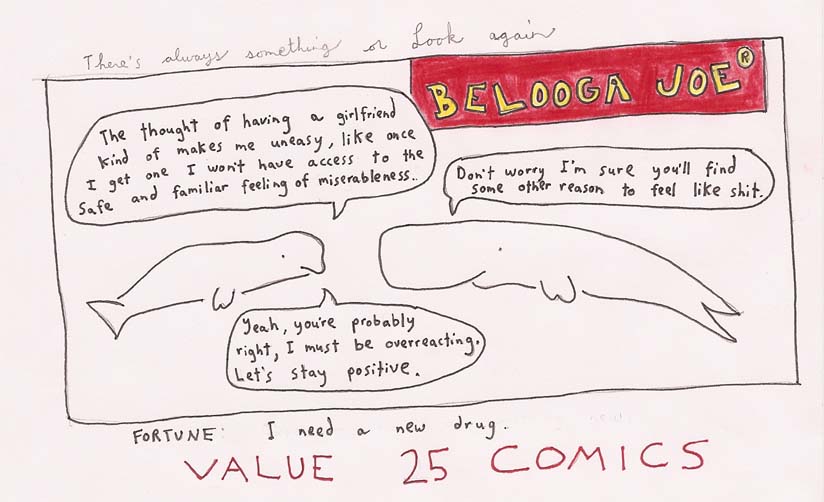 There's always something or Look again
BELOOGA JOE®
The thought of having a girlfriend
kind of makes me uneasy, like once
I get one I won't have access to the
safe and familiar feeling of miserableness..
Don't worry I'm sure you'll find
some other reason to feel like shit.
Yeah, you're probably
right, I must be overreacting.
Let's stay positive.
FORTUNE: I need a new drug.
VALUE 25 COMICS